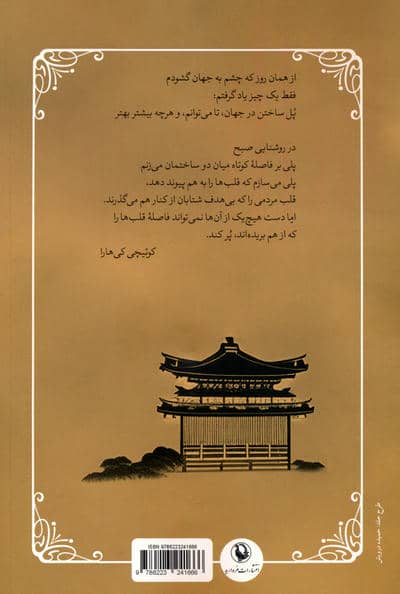 از همان روز که چشم به جهان گشودم
فقط یک چیز یاد گرفتم:
پُل ساختن در جهان، تا می‌توانم، و هرچه بیشتر بهتر
در روشنایی صبح
پلی بر فاصلهٔ کوتاه میان دو ساختمان می‌زنم
پلی می‌سازم که قلب‌ها را به هم پیوند دهد،
قلب مردمی را که بی‌هدف شتابان از کنار هم می‌گذرند.
اما دست هیچ‌یک از آن‌ها نمی‌تواند فاصلهٔ قلب‌ها را
که از هم بریده‌اند، پُر کند.
کوئیچی کی‌هارا
طرح جلد: حمیده درویش
ISBN: 9786223241666
9 786223 241666
انتشارات مروارید